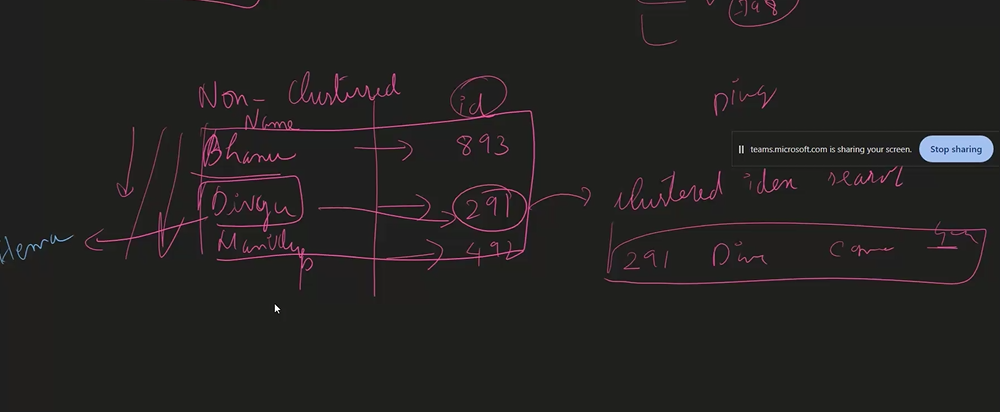 798
Non- Clustured
Name
id
Bhanu → 893
Divya → 291
→ 492
Hema
Divy
teams.microsoft.com is sharing your screen.
Stop sharing
clustered idex search
291 Div